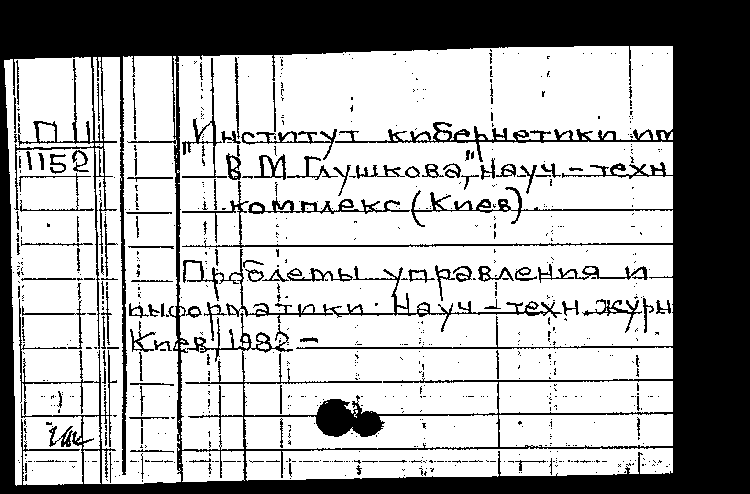 П 11
1152
„Институт кибернетики им
В М Глушкова," науч.-техн
комплекс (Киев).
Проблемы управления и
информатики: Науч-техн. журн
Киев, 1982 -